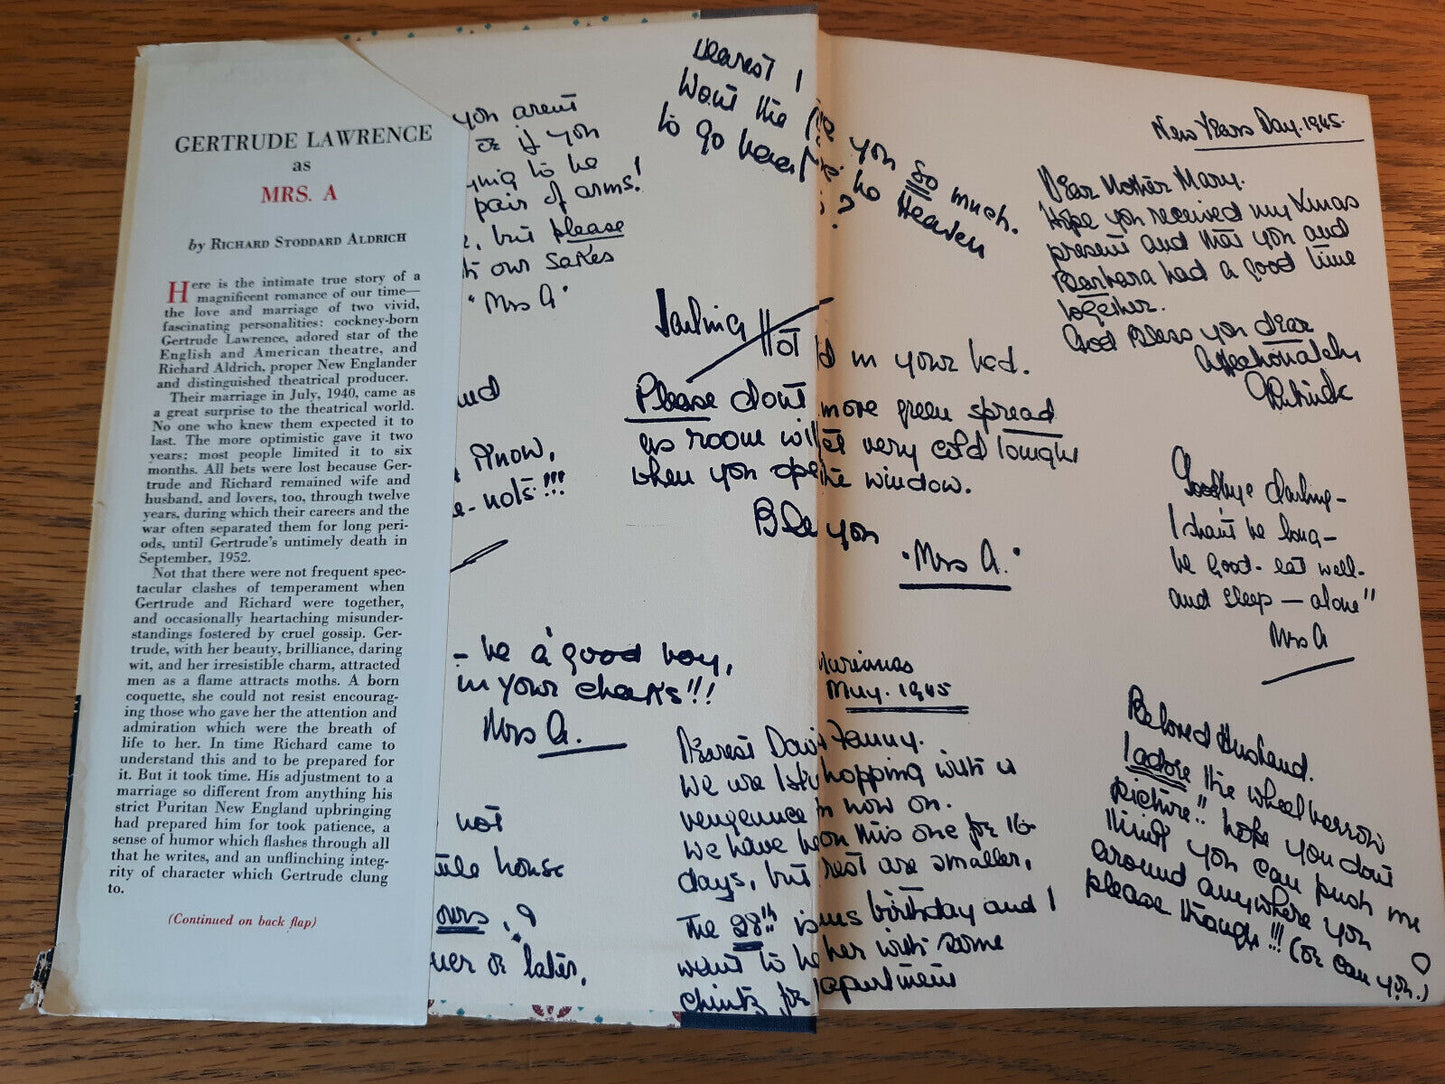 GERTRUDE LAWRENCE
as
MRS. A
by RICHARD STODDARD ALDRICH
Here is the intimate true story of a
magnificent romance of our time—
the love and marriage of two vivid,
fascinating personalities: cockney-born
Gertrude Lawrence, adored star of the
English and American theatre, and
Richard Aldrich, proper New Englander
and distinguished theatrical producer.
Their marriage in July, 1940, came as
a great surprise to the theatrical world.
No one who knew them expected it to
last. The more optimistic gave it two
years; most people limited it to six
months. All bets were lost because Ger-
trude and Richard remained wife and
husband, and lovers, too, through twelve
years, during which their careers and the
war often separated them for long peri-
ods, until Gertrude's untimely death in
September, 1952.
Not that there were not frequent spec-
tacular clashes of temperament when
Gertrude and Richard were together,
and occasionally heartaching misunder-
standings fostered by cruel gossip. Ger-
trude, with her beauty, brilliance, daring
wit, and her irresistible charm, attracted
men as a flame attracts moths. A born
coquette, she could not resist encourag-
ing those who gave her the attention and
admiration which were the breath of
life to her. In time Richard came to
understand this and to be prepared for
it. But it took time. His adjustment to a
marriage so different from anything his
strict Puritan New England upbringing
had prepared him for took patience, a
sense of humor which flashes through all
that he writes, and an unflinching integ-
rity of character which Gertrude clung
to.
(Continued on back flap)
you arent
or if you
ying to be
pair of arms!
but please
our sakes
"Mrs A"
Dearest I
you so much.
Wont the
be Heaven
to go
?
Darling
Hot
in your bed.
Please dont
more green spread
as room will
get very cold tonight
when you ope
the window.
Bless you
"Mrs A."
know,
nots!!!
- be a good boy,
in your cheaks!!!
Mrs A.
not
house
ours, ?
or later,
Marianas
May. 1945
Dearest David Fanny.
We are hopping with a
vengeance now on.
We have been on this one for 16
days, but rest are smaller,
The 28th is birthday and I
want to be her with some
chintz for apartment
New Years Day. 1945.
Dear Mother Mary.
Hope you received my Xmas
present and that you and
Barbara had a good time
together.
God Bless you dear
Affectionately
Goodbye darling -
I shan't be long -
be good - eat well -
and sleep — alone"
Mrs A
Beloved Husband.
I adore the wheel barrow
picture!! hope you dont
think you can push me
around anywhere you
please though!!! (or can you.)